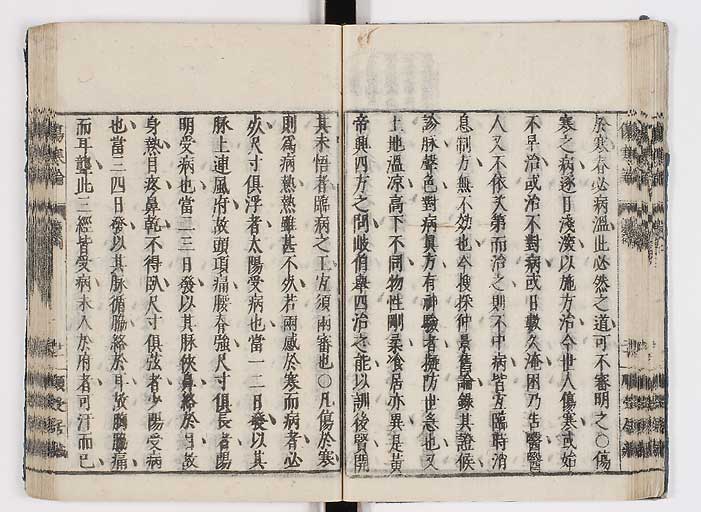 於寒春必病溫此必然之道可不審明之〇傷
寒之病逐日淺深以施方治今世人傷寒或始
不早治或治不對病或日數久淹困乃告醫醫
人又不依次第而治之則不中病皆宜臨時消
息制方無不効也今搜採仲景舊論錄其證候
診脉聲色對病真方有神驗者擬防世急也又
土地溫凉高下不同物性剛柔飡居亦異是黃
帝興四方之問岐伯舉四治之能以訓後賢開
其未悟者臨病之工宜須兩審也〇凡傷於寒
則爲病熱熱雖甚不死若兩感於寒而病者必
死尺寸俱浮者太陽受病也當一二日發以其
脉上連風府故頭項痛腰脊強尺寸俱長者陽
明受病也當二三日發以其脉俠鼻絡於目故
身熱目疼鼻乾不得臥尺寸俱弦者少陽受病
也當三四日發以其脉循脇絡於耳故胸脇痛
而耳聾此三經皆受病未入於府者可汗而已
傷寒論